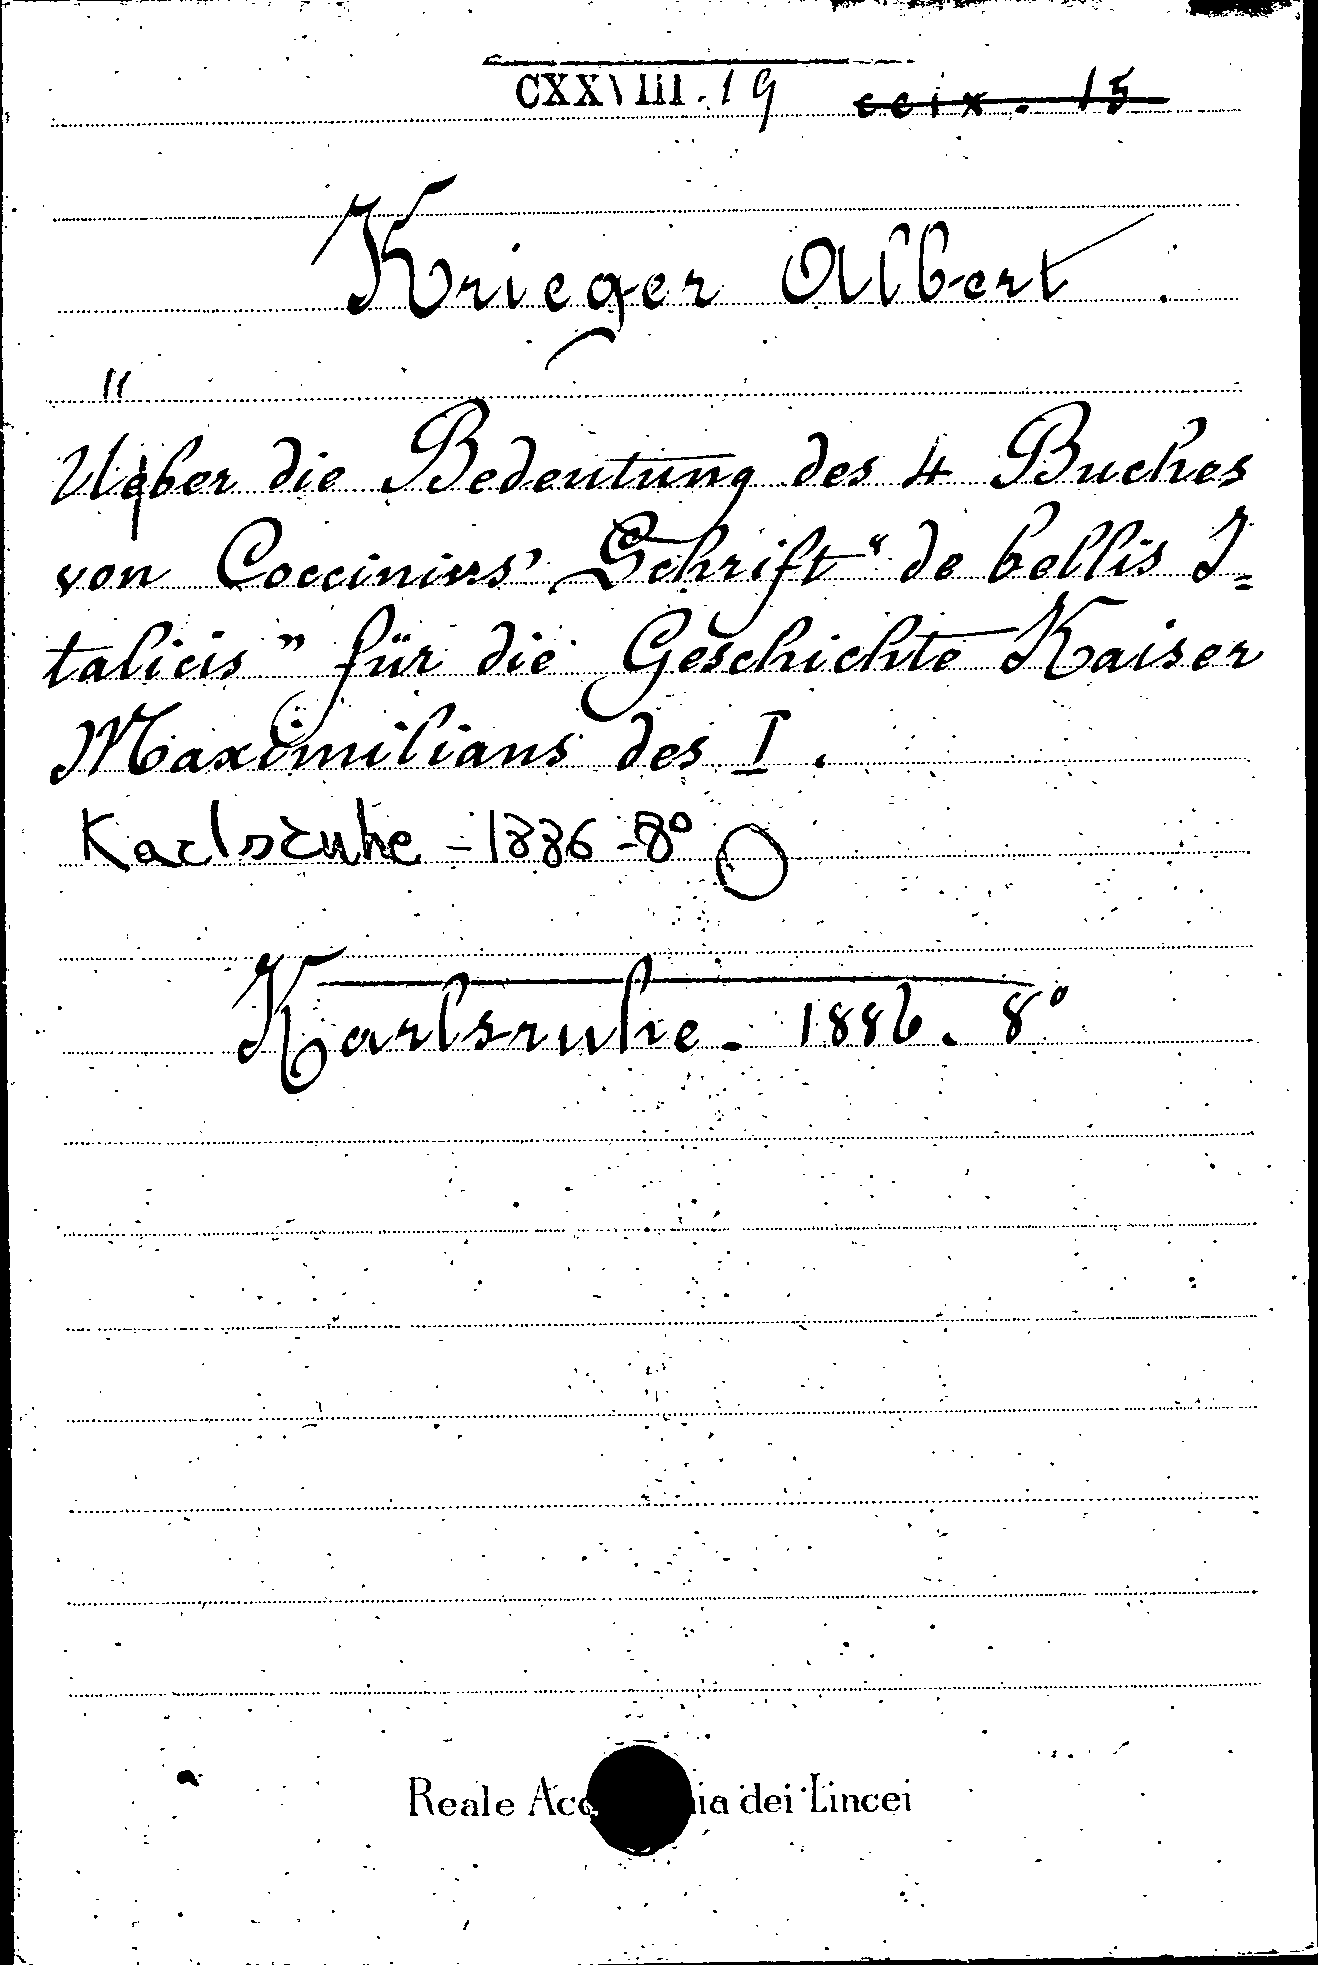 CXXVIII.19 ccix. 15
Krieger Albert.
"
Ueber die Bedeutung des 4 Buches
von Coccinius' Schrift "de bellis I=
talicis" für die Geschichte Kaiser
Maximilians des I.
Karlsruhe - 1886 - 8°
Karlsruhe. 1886. 8°
Reale Acc ia dei Lincei